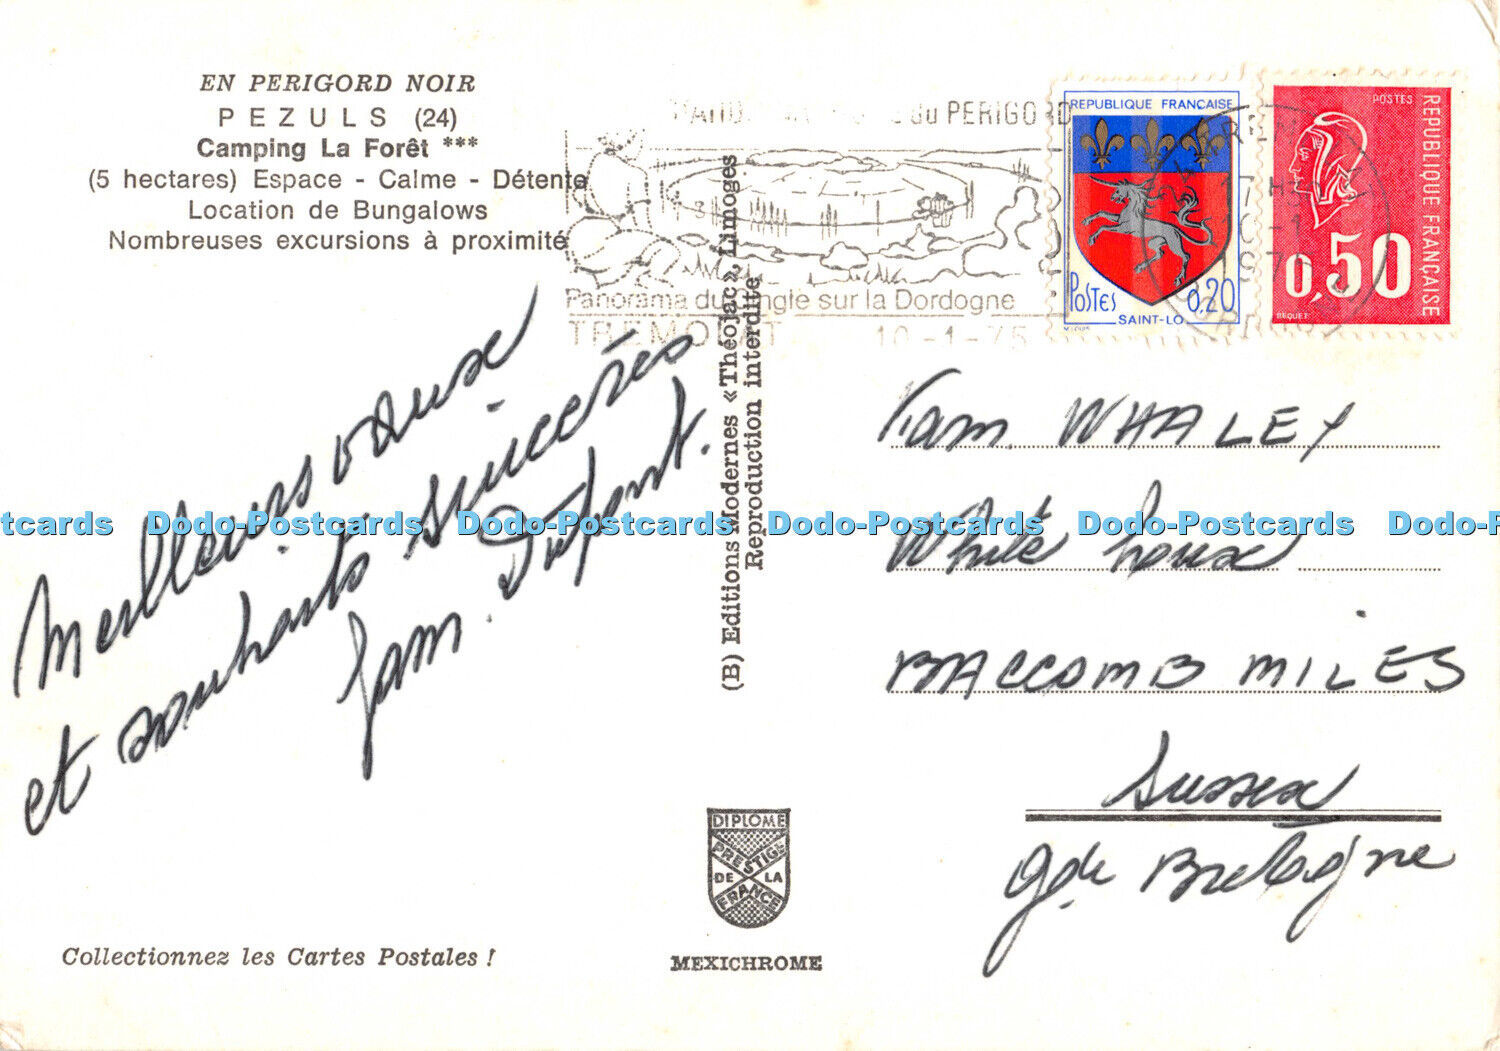 EN PERIGORD NOIR
PEZULS (24)
Camping La Forêt ***
(5 hectares) Espace - Calme - Détente
Location de Bungalows
Nombreuses excursions à proximité
du PERIGORD
Panorama du Cingle sur la Dordogne
TREMOLAT 10-1-75
REPUBLIQUE FRANÇAISE
Postes 0,20
SAINT-LO
POSTES
REPUBLIQUE FRANÇAISE
0,50
BEQUET
17 H
10-1
Meilleurs vœux
et souhaits sincères
fam. Dupont.
(B) Editions Modernes «Théojac», Limoges
Reproduction interdite
Fam. WHALEY
White houx
BACCOMB MILES
Sussex
gde Bretagne
Dodo-Postcards Dodo-Postcards Dodo-Postcards Dodo-Postcards Dodo-Postcards
DIPLOME
PRESTIGE
DE LA
FRANCE
Collectionnez les Cartes Postales !
MEXICHROME